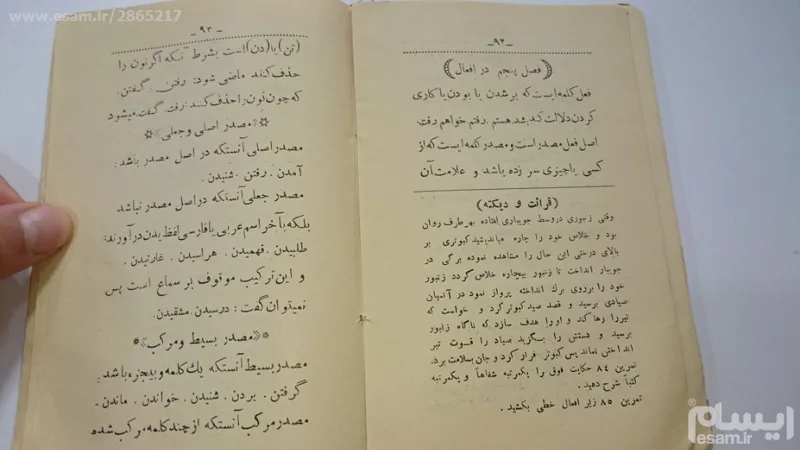 www.esam.ir/2865217
-۹۲-
﴿ فصل پنجم در افعال ﴾
فعل کلمه ایست که بر شدن یا بودن یا کاری
کردن دلالت کند: شد. هستم. رفتم. خواهم رفت.
اصل فعل مصدر است و مصدر کلمه ایست که از
کسی یا چیزی سر زده باشد و علامت آن
(قرائت و دیکته)
وقتی زنبوری در وسط جویباری افتاده بهر طرف روان
بود و خلاص خود را چاره میاندیشید کبوتری بر
بالای درختی این حال را مشاهده نموده برگی در
جویبار انداخت تا زنبور بیچاره خلاص گردد زنبور
خود را بر روی برك انداخته پرواز نمود در آنمیان
صیادی برسید و قصد صید کبوتر کرد و خواست که
تیر را رها کند و او را هدف سازد که ناگاه زنبور
برسید و دستش را بگزید صیاد را قوت تیر
انداختن نماند پس کبوتر فرار کرد و جان بسلامت برد.
تمرین ۸۴ حکایت فوق را یکمرتبه شفاهاً و یکمرتبه
کتباً شرح دهید.
تمرین ۸۵ زیر افعال خطی بکشید.
-۹۳-
(تن) یا (دن) است بشرط آنکه اگر نون را
حذف کنند ماضی شود: رفتن. گفتن.
که چون نون را حذف کنند: رفت. گفت میشود
*﴿مصدر اصلی و جعلی﴾*
مصدر اصلی آنستکه در اصل مصدر باشد:
آمدن. رفتن. شنیدن.
مصدر جعلی آنستکه در اصل مصدر نباشد
بلکه بآخر اسم عربی یا فارسی لفظ یدن در آورند:
طلبیدن. فهمیدن. هراسیدن. غارتیدن.
و این ترکیب موقوف بر سماع است پس
نمیتوان گفت: درسیدن. مشقیدن.
*﴿مصدر بسیط و مرکب﴾*
مصدر بسیط آنستکه یك کلمه و بیجزء باشد:
گرفتن. بردن. شنیدن. خواندن. ماندن.
مصدر مرکب آنستکه از چند کلمه مرکب شده
ایسام
esam.ir